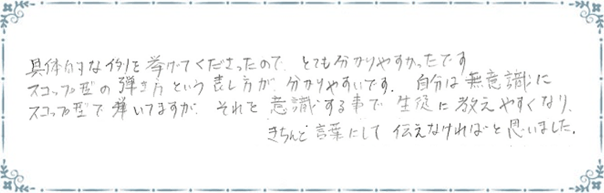 具体的な例を挙げてくださったので、とても分かりやすかったです
スコップ型の弾き方という表し方が分かりやすいです。自分は無意識に
スコップ型で弾いてますが、それを意識する事で生徒に教えやすくなり、
きちんと言葉にして伝えなければと思いました。